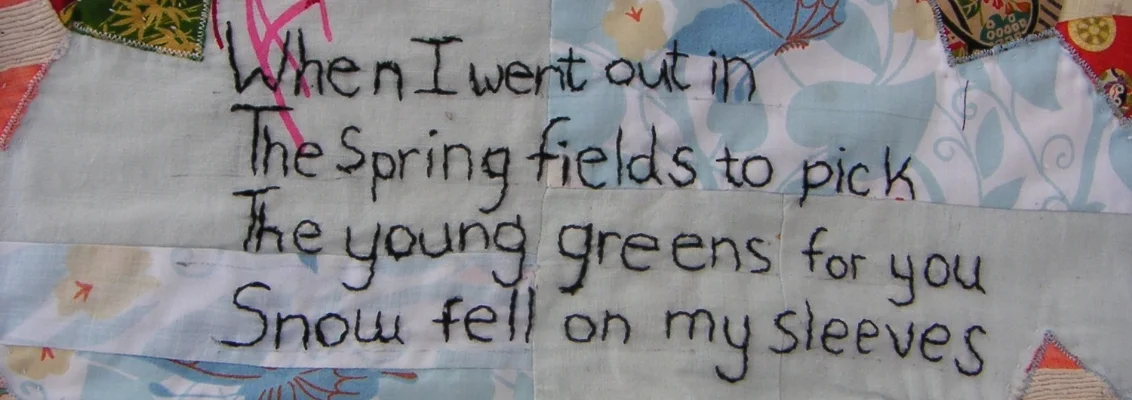 When I went out in
The Spring fields to pick
The young greens for you
Snow fell on my sleeves